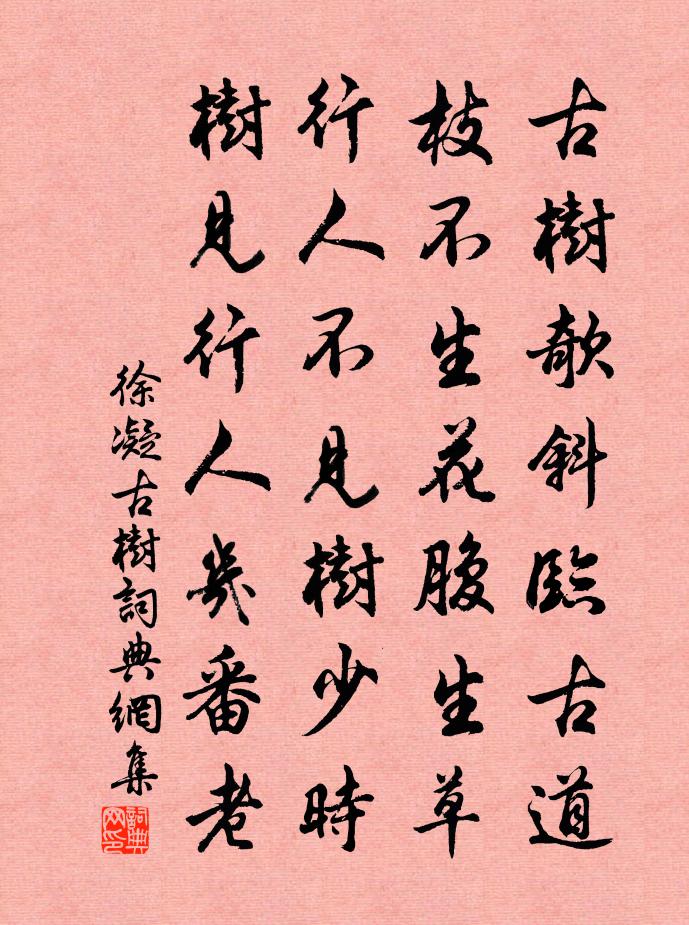 古樹欹斜臨古道
枝不生花腹生草
行人不見樹少時
樹見行人幾番老
徐凝古樹詞典網集
詞典
网印